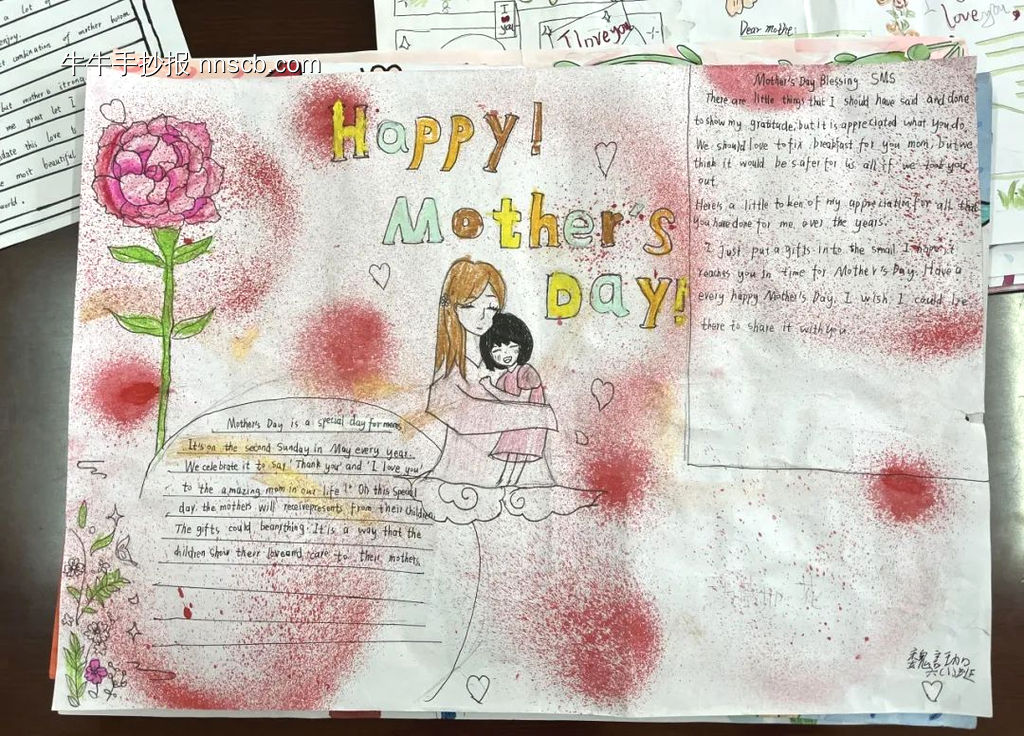 a lot of
enjoy.
combination of mother
but mother a strong
me great lot I
date this love
most beautiful
world.
牛牛手抄报 nnscb.com
I
you
I love you
Dear mothe
Love you,
Happy!
Mother's
Day!
Mother's Day Blessing SMS
There are little things that I should have said and done
to show my gratitude, but it is appreciated what you do.
We should love to fix breakfast for you mom, but we
think it would be safer for us all if we took you
out.
Here's a little token of my appreciation for all that
you have done for me, over the years.
I just put a gifts into the small I hope it
reaches you in time for Mother's Day. Have a
every happy Mother's Day. I wish I could be
there to share it with you
Mother's Day is a special day for moms
It's on the second Sunday in May every year.
We celebrate it to say 'Thank you' and 'I love you'
to the amazing mom in our life!" On this special
day. the mothers will receive presents from their children.
The gifts could be anything. It is a way that the
children show their love and care to their mothers.
六(1)班